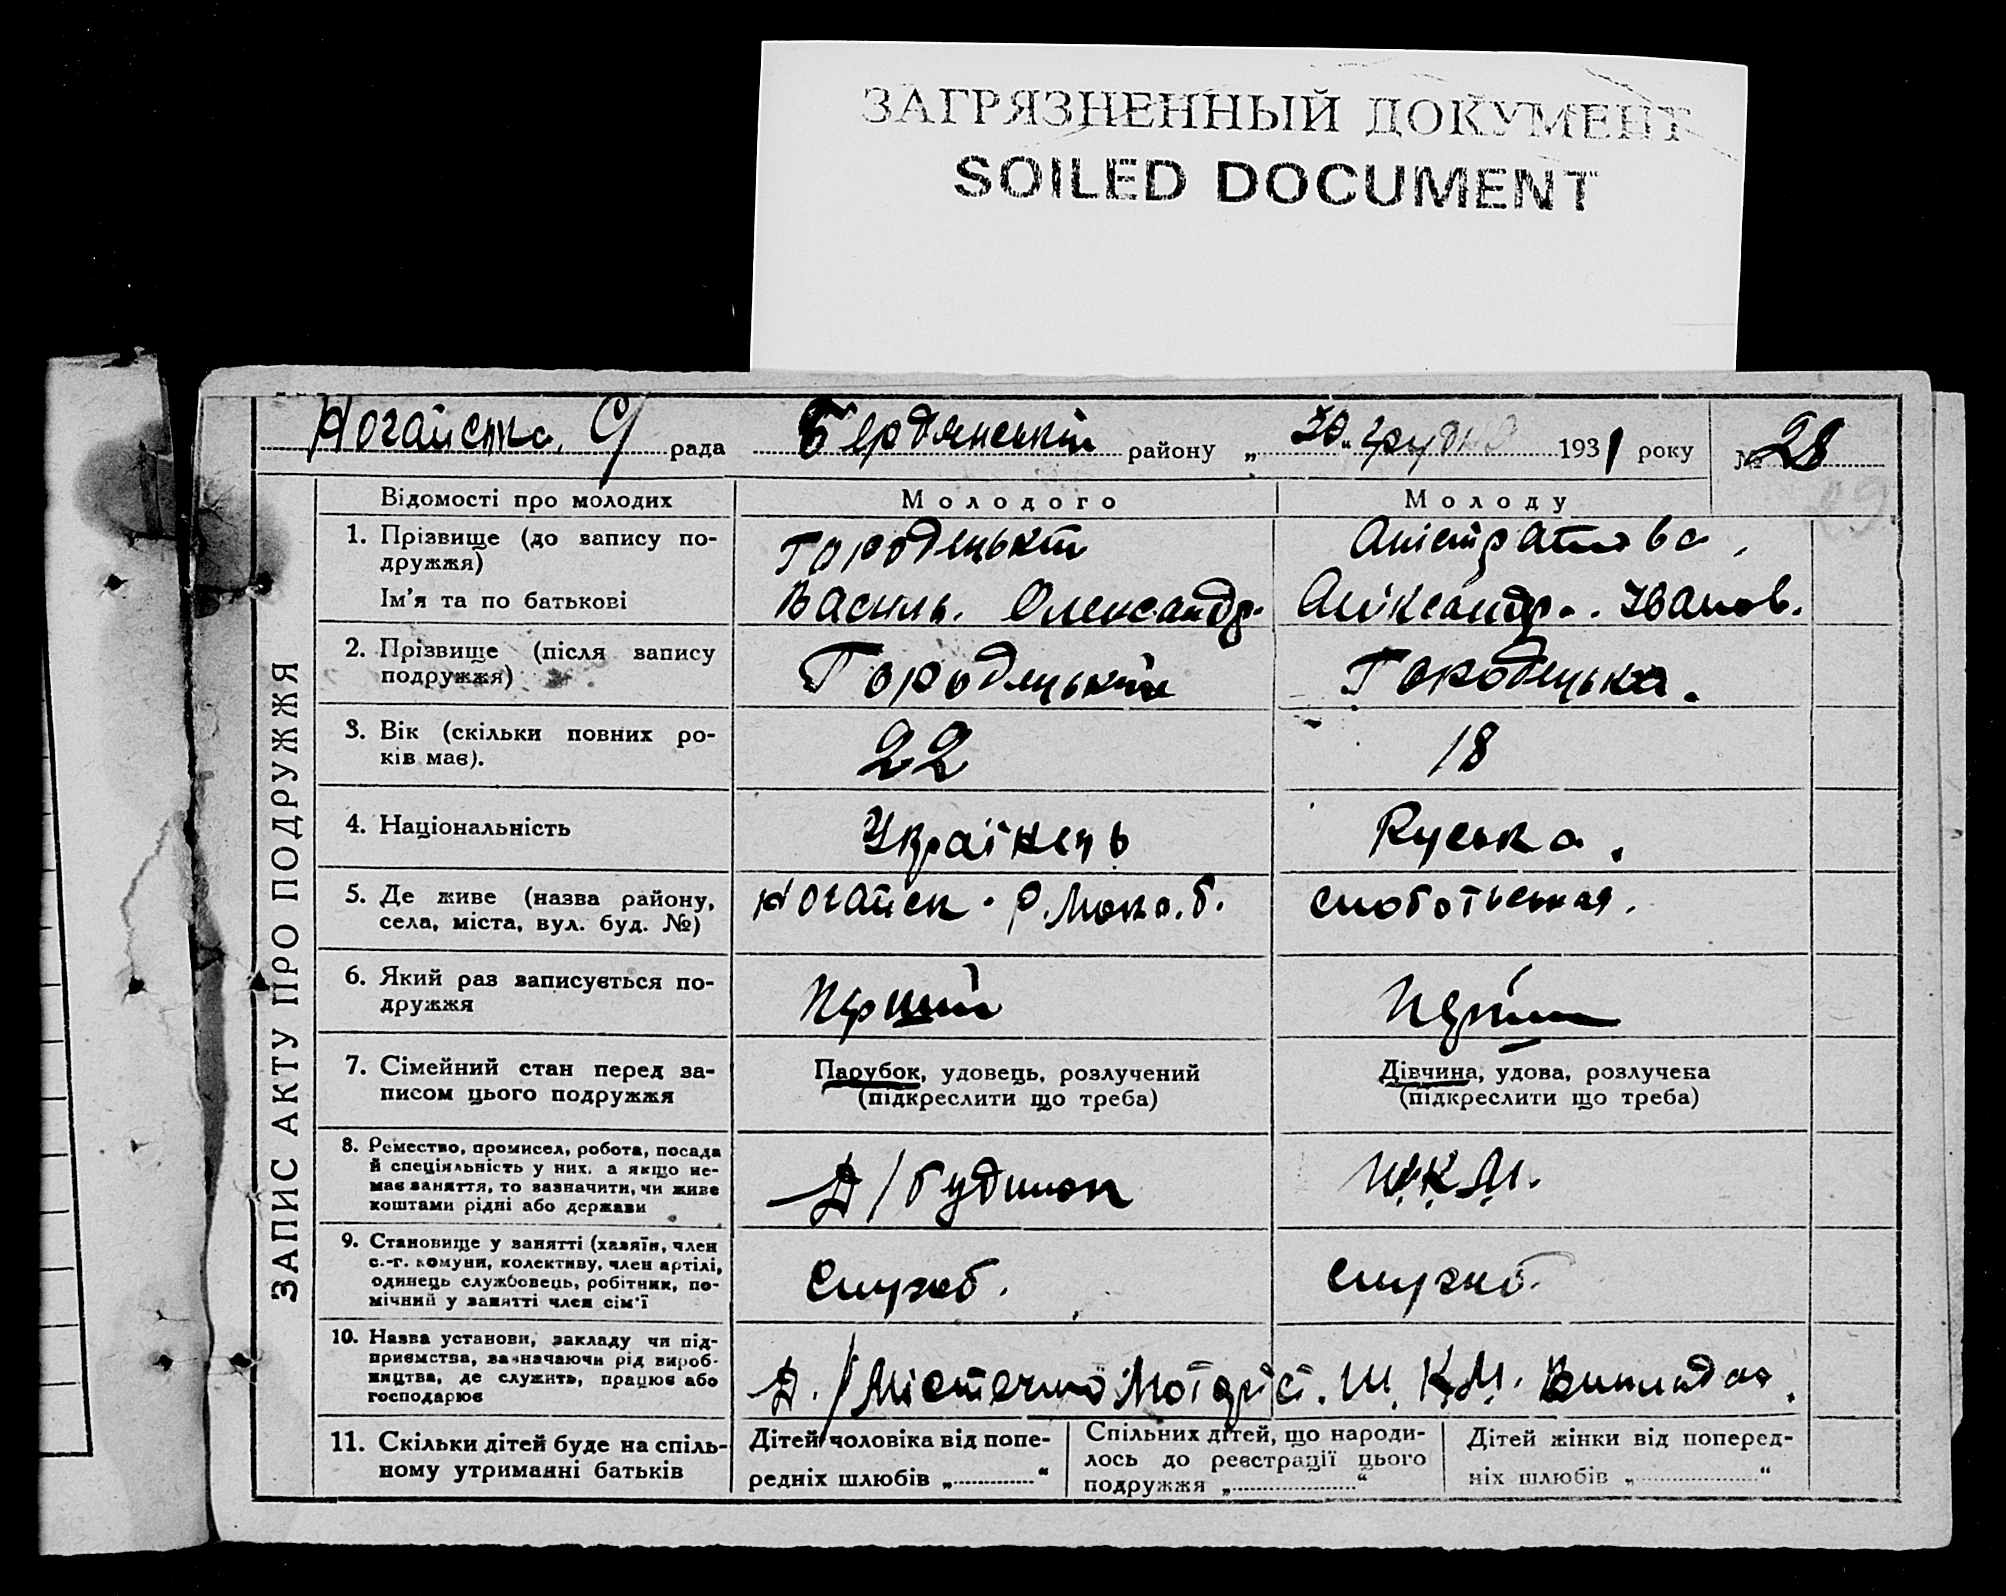 ЗАГРЯЗНЕННЫЙ ДОКУМЕНТ
SOILED DOCUMENT
рада Бердянський району „30“ грудня 1931 року № 28
29
ЗАПИС АКТУ ПРО ПОДРУЖЖЯ
Відомості про молодих Молодого Молоду
1. Прізвище (до запису по-
дружжя)
Городецький
Ім'я та по батькові Василь. Олександр. Іванов.
2. Прізвище (після запису
подружжя)
Городецький Городецька.
3. Вік (скільки повних ро-
ків має).
22 18
4. Національність Українець Руська.
5. Де живе (назва району,
села, міста, вул. буд. №)
Ногайськ.
6. Який раз записується по-
дружжя
Перший
7. Сімейний стан перед за-
писом цього подружжя
Парубок, удовець, розлучений
(підкреслити що треба)
Дівчина, удова, розлучена
(підкреслити що треба)
8. Ремество, промисел, робота, посада
й спеціяльність у них. а якщо не-
має заняття, то зазначити, чи живе
коштами рідні або держави
Д/будинок Ш.К.М.
9. Становище у занятті (хазяїн, член
с.-г. комуни, колективу, член артілі,
одинець службовець, робітник, по-
мічний у занятті член сім'ї
Служб. Служб.
10. Назва установи, закладу чи під-
приємства, зазначаючи рід вироб-
ництва, де служить, працює або
господарює
Д./Містечко Ш.К.М.
11. Скільки дітей буде на спіль-
ному утриманні батьків
Дітей чоловіка від попе-
редніх шлюбів „ “
Спільних дітей, що народи-
лось до реєстрації цього
подружжя „ “
Дітей жінки від поперед-
ніх шлюбів „ “